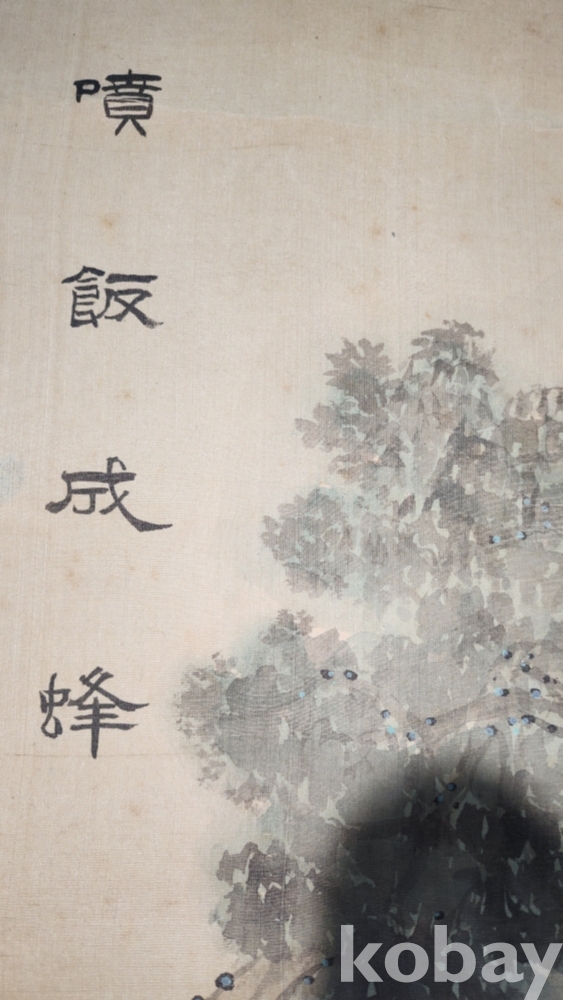 噴飯成蜂
kobay